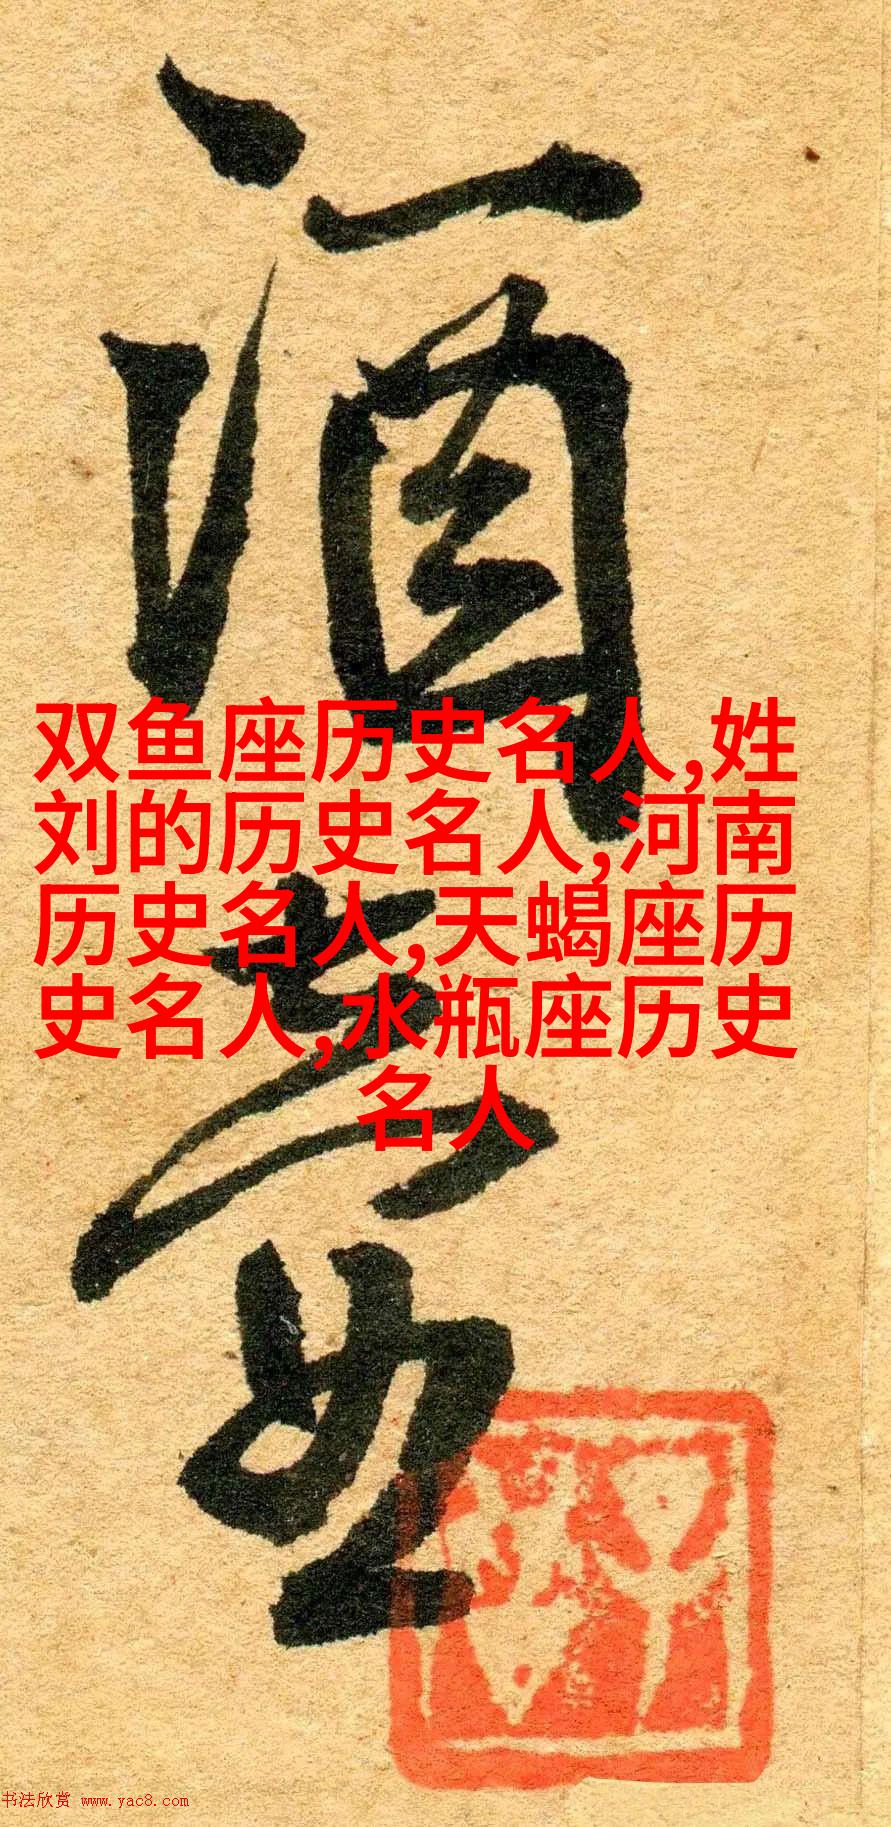 酒
双鱼座历史名人,姓
刘的历史名人,河南
历史名人,天蝎座历
史名人,水瓶座历史
名人
书法欣赏 www.yac8.com